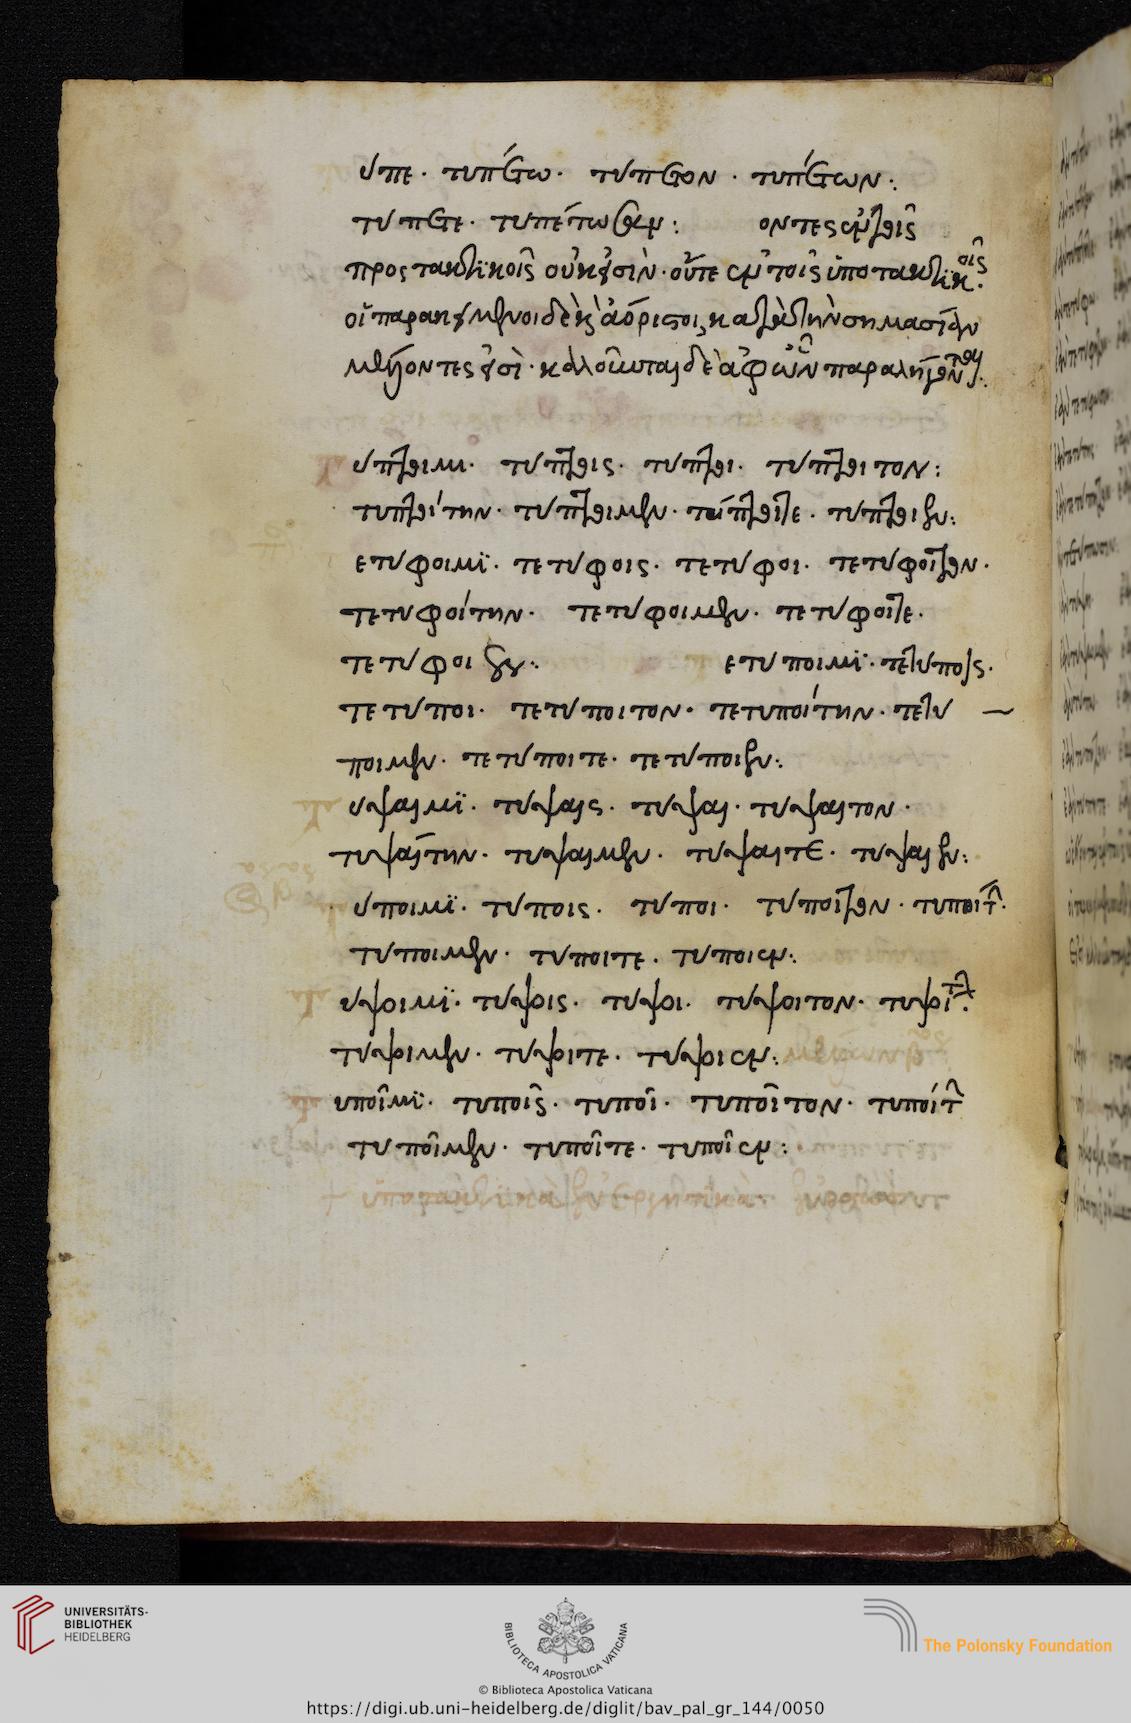 υπε· τυπέτω· τύπετον· τυπέτων:
τύπετε· τυπέτωσαν: οντες ἐν τοῖς
προστακτικοῖς οὐκ εἰσὶν· οὔτε ἐν τοῖς ὑποτακτικοῖς·
οἵ παρακείμενοι δὲ καὶ ἀόριστοι, κατὰ τὴν σημασίαν
μέλλοντες εἰσὶ· καλοῦνται δὲ ἀφ' ὧν παραλήγονται:
υπτοιμι· τυπτοις· τυπτοι· τυπτοιτον:
τυπτοίτην· τυπτοιμεν· τύπτοιτε· τυπτοιεν:
ετυφοιμϊ· τετυφοις· τετυφοι· τετυφοιτον·
τετυφοίτην· τετυφοιμεν· τετυφοιτε·
τετυφοιεν: ετυποιμϊ· τετυποις·
τετυποι· τετυποιτον· τετυποίτην· τετυ
ποιμεν· τετυποιτε· τετυποιεν:
υψαιμϊ· τυψαις· τυψαι· τυψαιτον·
τυψαίτην· τυψαιμεν· τυψαιτε· τυψαιεν:
υποιμϊ· τυποις· τυποι· τυποιτον· τυποίτην·
τυποιμεν· τυποιτε· τυποιεν:
υψοιμϊ· τυψοις· τυψοι· τυψοιτον· τυψοίτην·
τυψοιμεν· τυψοιτε· τυψοιεν:
υποῖμϊ· τυποῖς· τυποῖ· τυποῖτον· τυποίτην
τυποῖμεν· τυποῖτε· τυποῖεν:
UNIVERSITÄTS-
BIBLIOTHEK
HEIDELBERG
BIBLIOTECA APOSTOLICA VATICANA
The Polonsky Foundation
© Biblioteca Apostolica Vaticana
https://digi.ub.uni-heidelberg.de/diglit/bav_pal_gr_144/0050